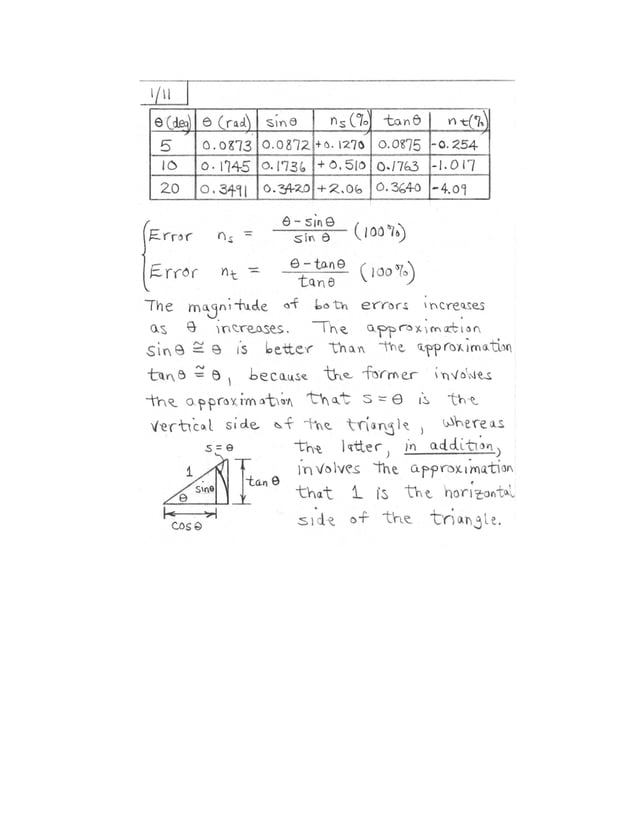 1/11
θ (deg) θ (rad) sinθ ns (%) tanθ nt (%)
5 0.0873 0.0872 +0.1270 0.0875 -0.254
10 0.1745 0.1736 +0.510 0.1763 -1.017
20 0.3491 0.3420 +2.06 0.3640 -4.09
Error ns = (θ - sinθ)/(sin θ) (100%)
Error nt = (θ - tanθ)/(tanθ) (100%)
The magnitude of both errors increases
as θ increases. The approximation
sinθ ≅ θ is better than the approximation
tanθ ≅ θ, because the former involves
the approximation that s = θ is the
vertical side of the triangle, whereas
the latter, in addition,
involves the approximation
that 1 is the horizontal
side of the triangle.
s = θ
1
sinθ
tan θ
θ
cosθ